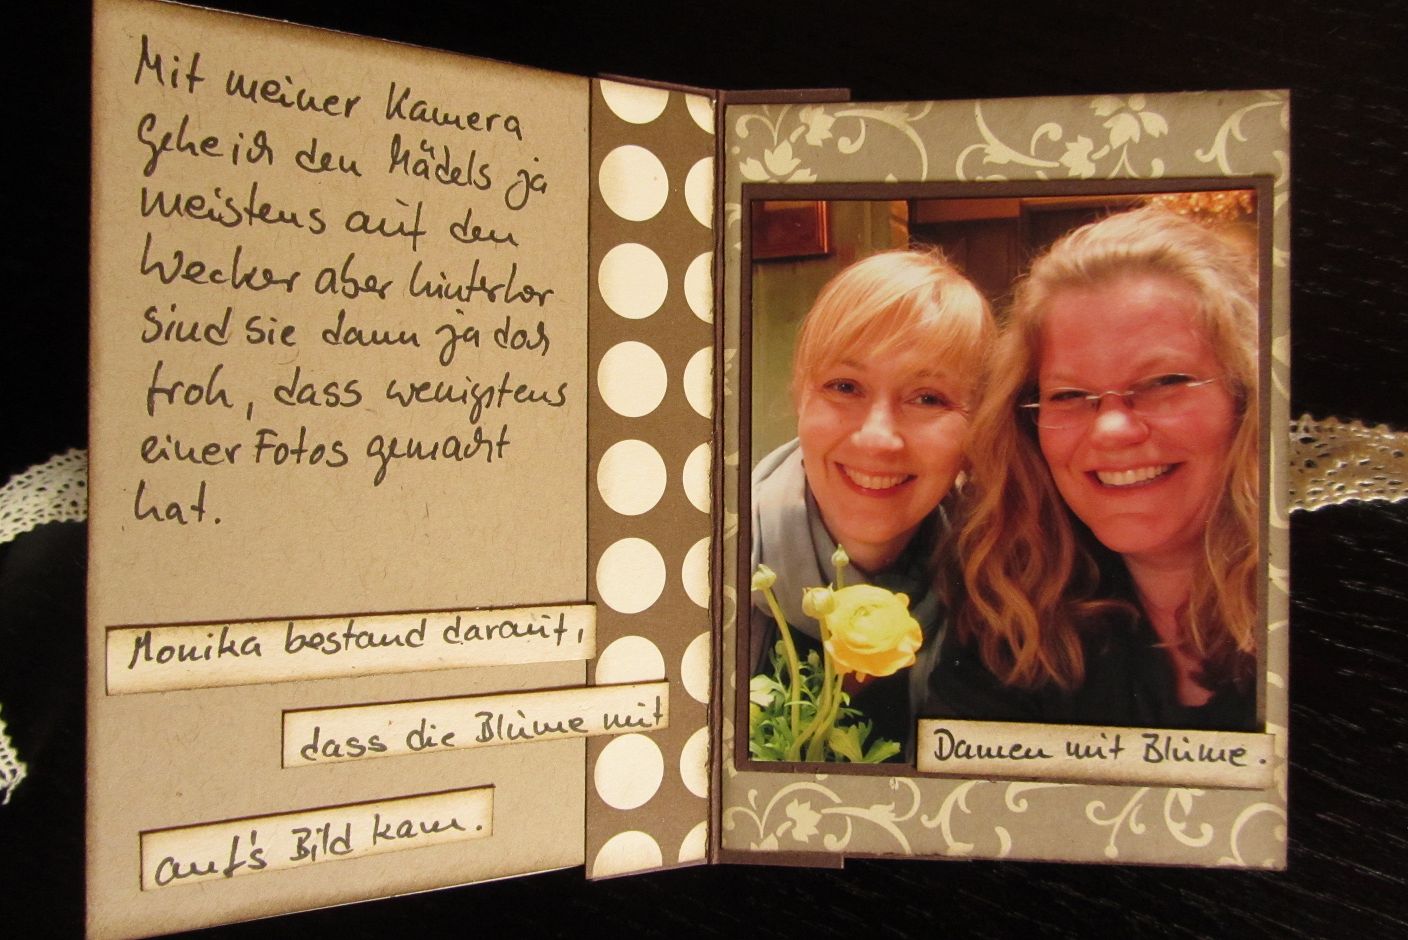 Mit meiner Kamera
Gehe ich den Mädels ja
meistens auf den
Wecker aber hinterher
sind sie dann ja doch
froh, dass wenigstens
einer Fotos gemacht
hat.
Monika bestand darauf,
dass die Blume mit
auf's Bild kam.
Damen mit Blume.